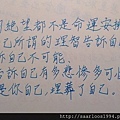 絕望都不是命運安排
己所謂的理智告訴自
不自己不可能。
訴自己有多悲慘多可
是你自己,埋葬了自己。
http://saarloos1994.pixnet